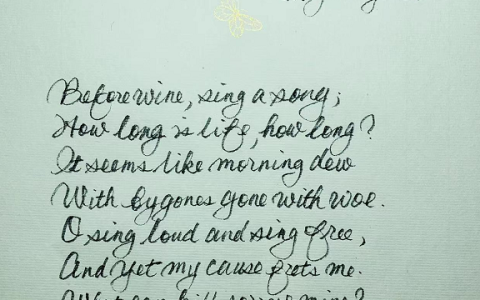 Before wine, sing a song;
How long is life, how long?
It seems like morning dew
With bygones gone with woe.
O sing loud and sing free,
And yet my cause frets me.
What can kill sorrow mine?